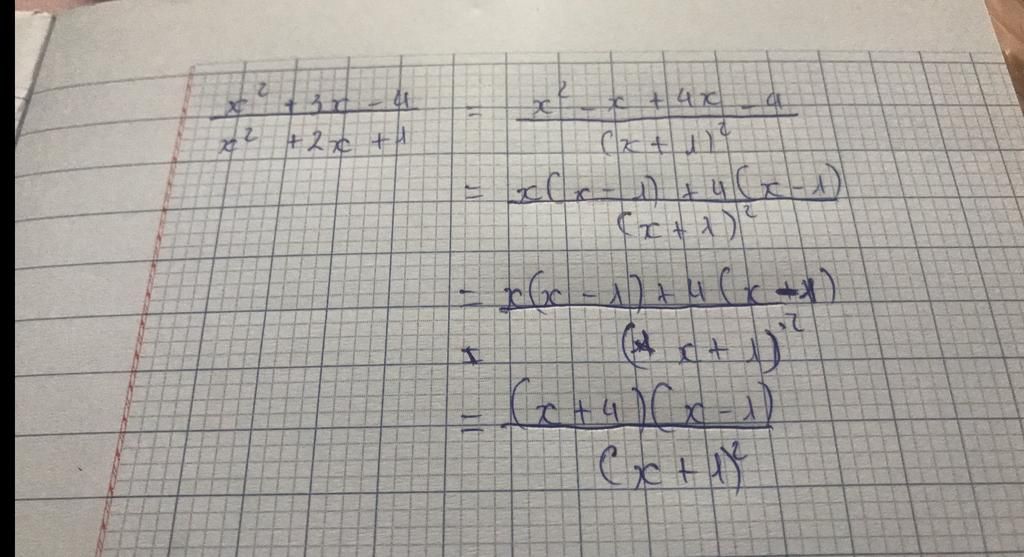 x² + 3x - 4 / x² + 2x + 1 = x² - x + 4x - 4 / (x + 1)²
= x(x - 1) + 4(x - 1) / (x + 1)²
= x(x - 1) + 4(x - 1) / (x + 1)²
= (x + 4)(x - 1) / (x + 1)²